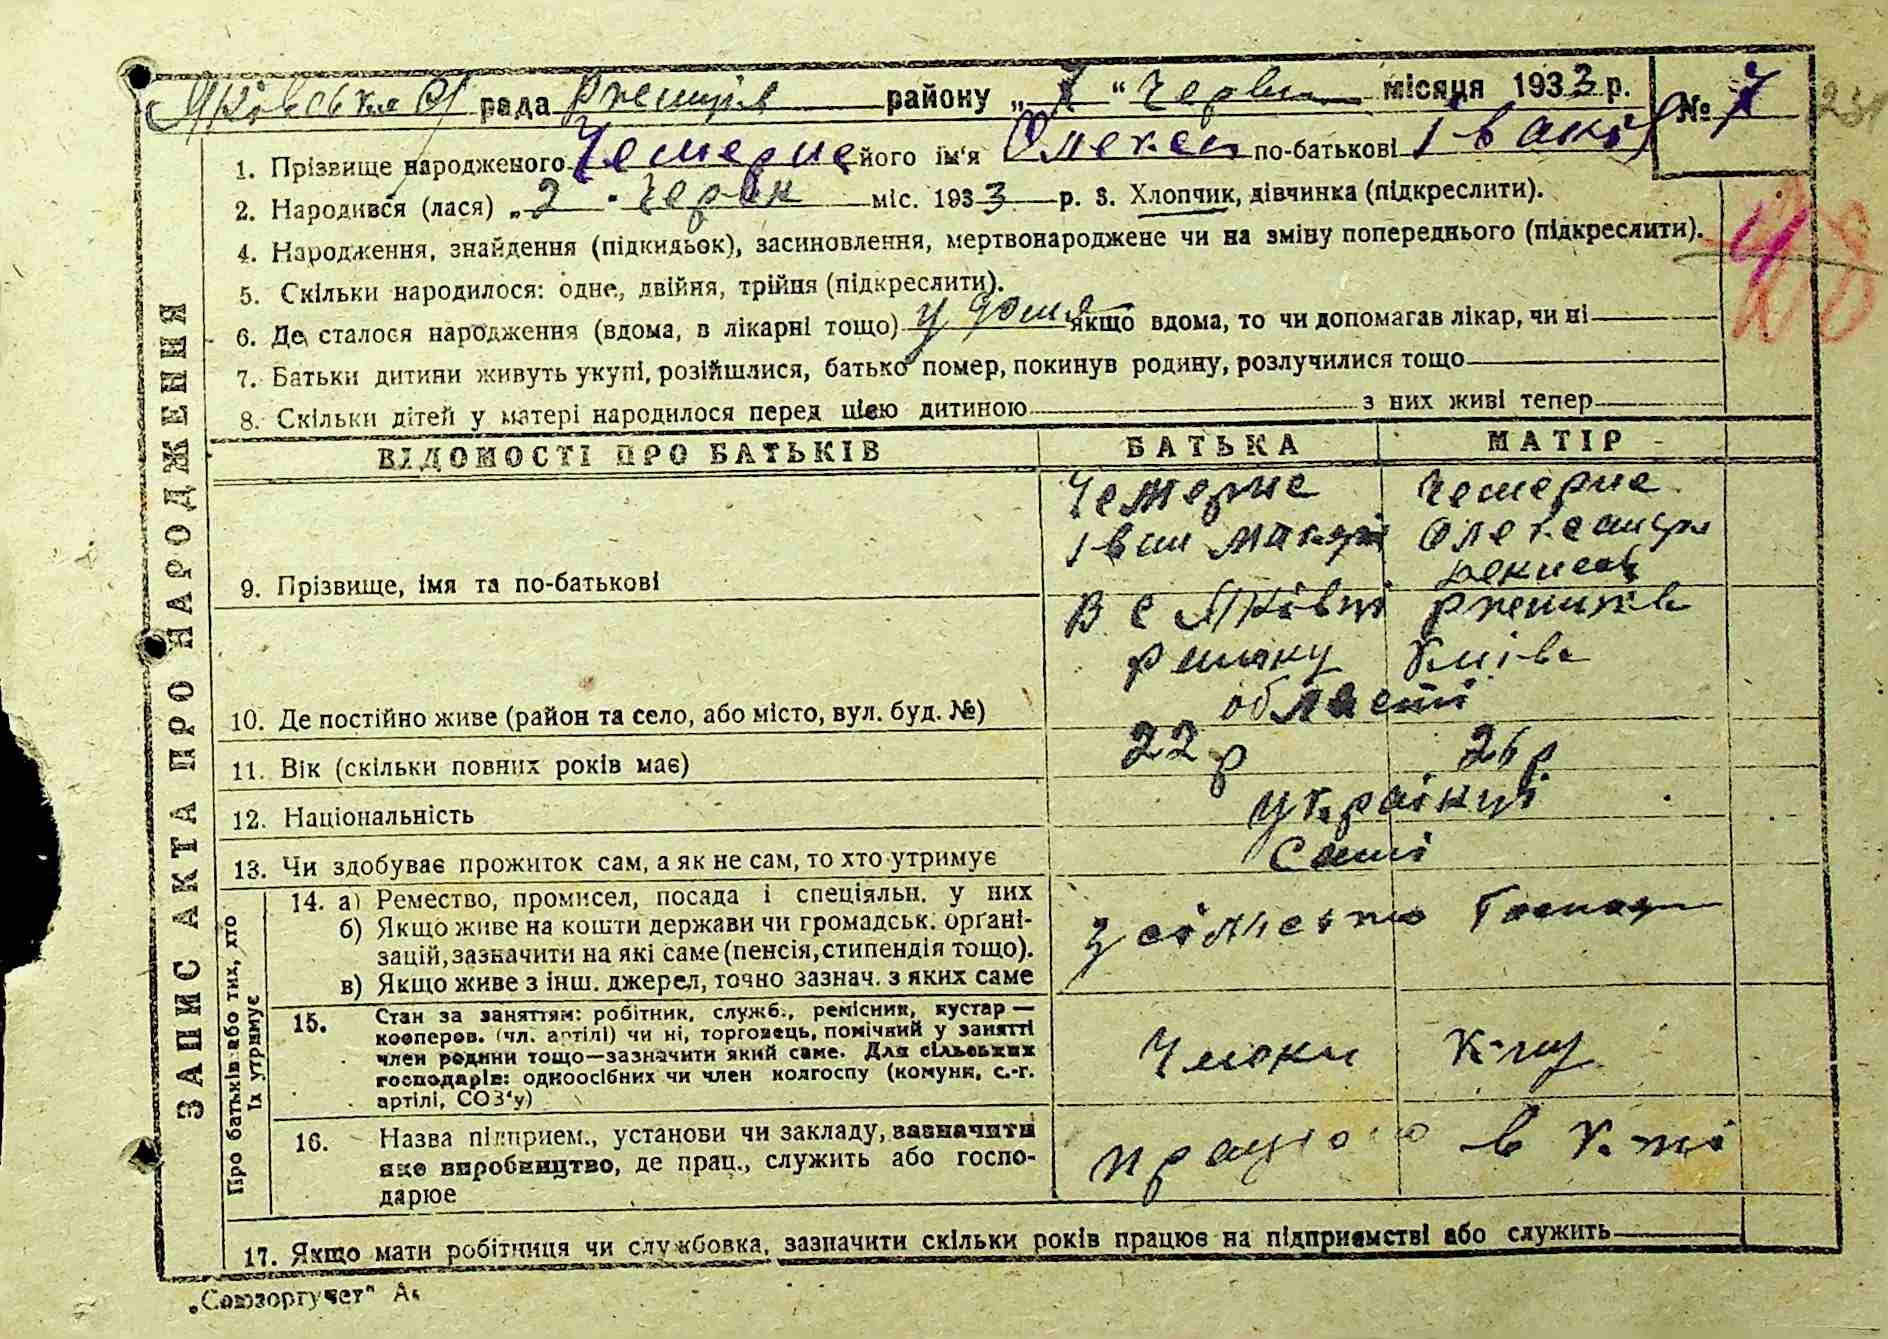 рада района „7“ Червня місяця 1933 р. № 7
1. Прізвище народженого Чемерис його ім'я Олексій по-батькові Іванів
2. Народився (лася) „2 " Червня міс. 1933 р. 3. Хлопчик, дівчинка (підкреслити).
4. Народження, знайдення (підкидьок), засиновлення, мертвонароджене чи на зміну попереднього (підкреслити).
5. Скільки народилося: одне, двійня, трійня (підкреслити).
6. Де сталося народження (вдома, в лікарні тощо) у дома якщо вдома, то чи допомагав лікар, чи ні
7. Батьки дитини живуть укупі, розійшлися, батько помер, покинув родину, розлучилися тощо
8. Скільки дітей у матері народилося перед цією дитиною з них живі тепер
ЗАПИС АКТА ПРО НАРОДЖЕННЯ
ВІДОМОСТІ ПРО БАТЬКІВ БАТЬКА МАТІР
Чемерис Чемерис
Іван
9. Прізвище, імя та по-батькові
В с
Київс
області
10. Де постійно живе (район та село, або місто, вул. буд. №)
11. Вік (скільки повних років має) 22 р 26 р
12. Національність українці
13. Чи здобуває прожиток сам, а як не сам, то хто утримує самі
Про батьків або тих, хто
їх утримує
14. а) Ремество, промисел, посада і спеціяльн. у них
б) Якщо живе на кошти держави чи громадськ. органі-
зацій, зазначити на які саме (пенсія, стипендія тощо).
в) Якщо живе з інш. джерел, точно зазнач. з яких саме
15. Стан за заняттям: робітник, служб., ремісник, кустар —
кооперов. (чл. артілі) чи ні, торговець, помічний у занятті
член родини тощо—зазначити який саме. Для сільських
господарів: одноосібних чи член колгоспу (комуни, с.-г.
артілі, СОЗ'у)
Члени к-пу
16. Назва підприєм., установи чи закладу, зазначити
яке виробництво, де прац., служить або госпо-
дарює
працюю в к-пі
17. Якщо мати робітниця чи службовка, зазначити скільки років працює на підприємстві або служить
„Союзоргучет"